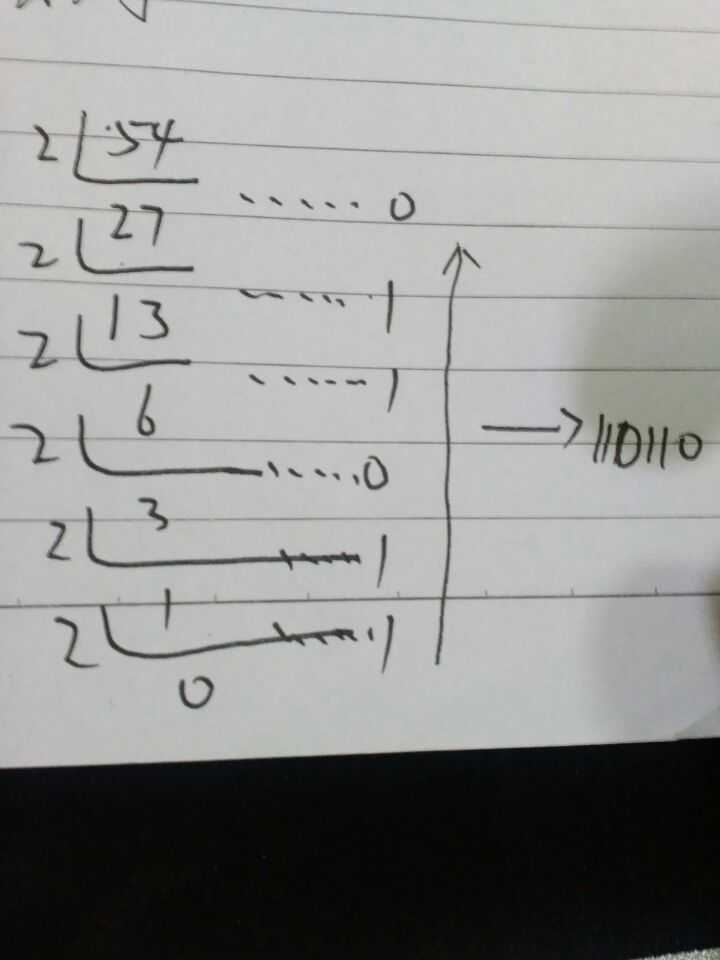 2 54
..... 0
2 27
..... 1
2 13
..... 1
2 6
..... 0 → 110110
2 3
..... 1
2 1
..... 1
0